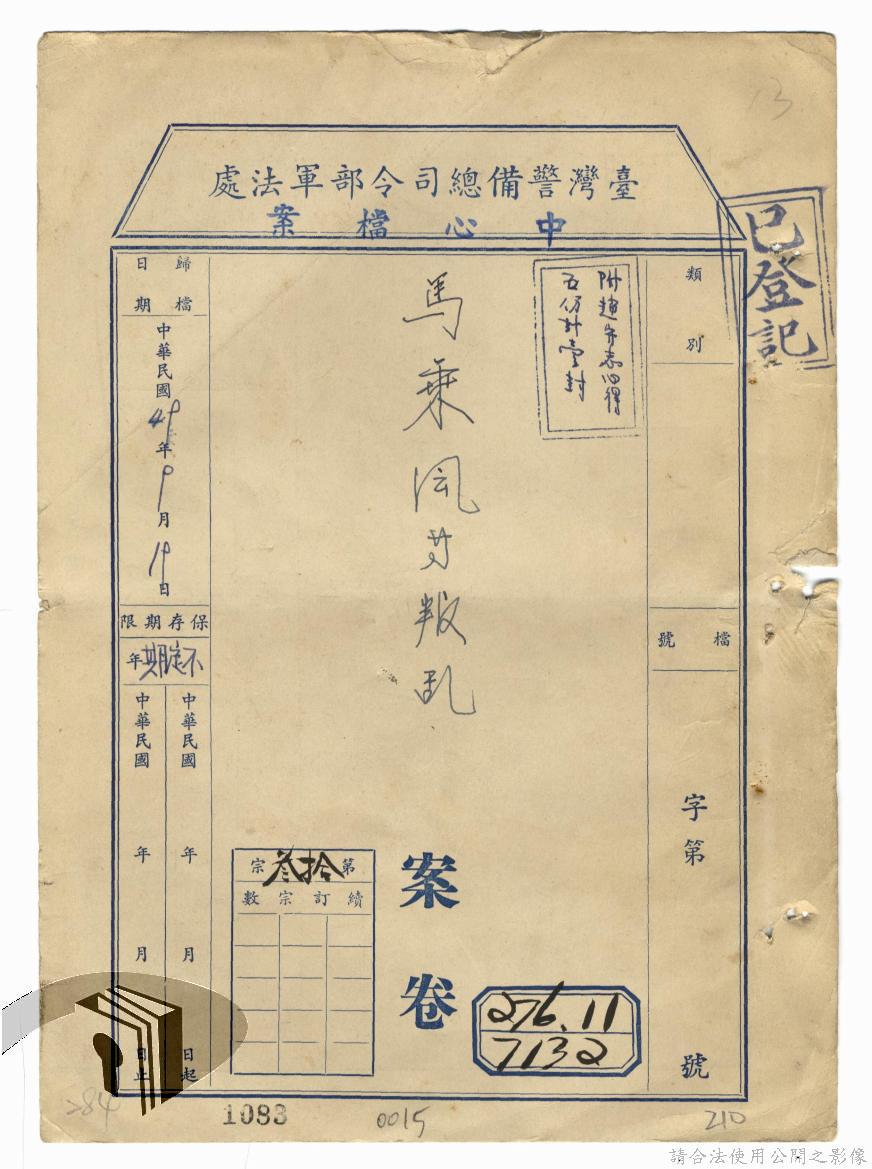 13
臺灣警備總司令部軍法處
中心檔案
已登記
類別
檔號
字第
號
附趙守志心得
五份計壹封
馬乘風等叛乱
案卷
276.11
7132
第拾叁宗
續訂宗數
歸檔日期
中華民國49年9月19日
保存期限
不定期年
中華民國 年 月 日起
中華民國 年 月 日止
284
1083
0015
210
請合法使用公開之影像